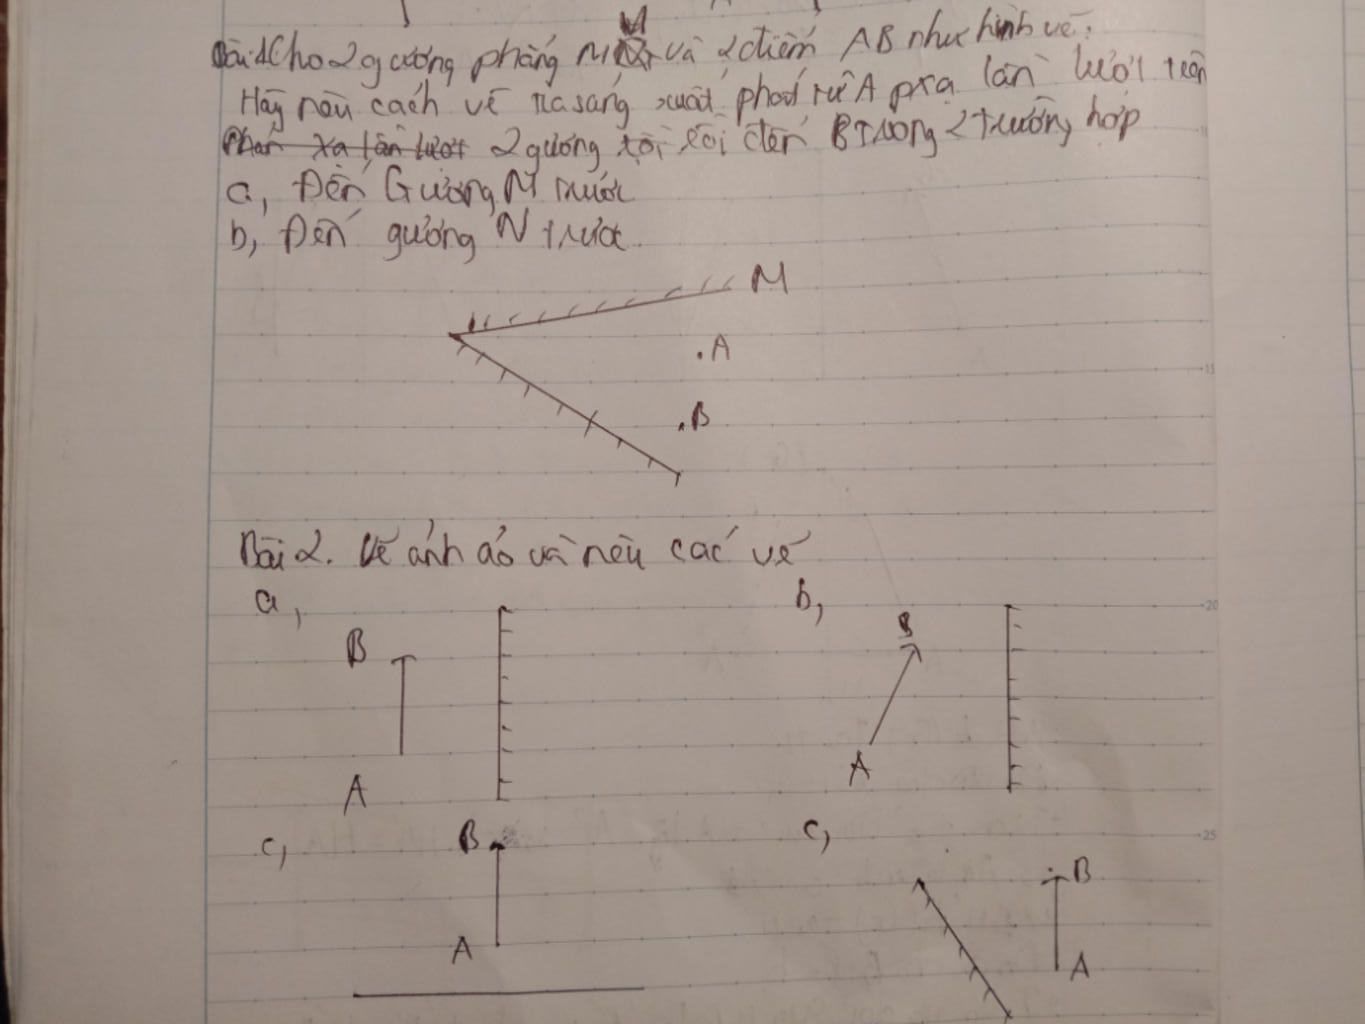 Bài 1 Cho 2 gương phẳng M N và 2 điểm AB như hình vẽ.
Hãy nêu cách vẽ tia sáng xuất phát từ A pxạ lần lượt trên
phản xạ lần lượt 2 gương tới rồi đến B trong 2 trường hợp
a, Đến Gương M trước
b, Đến gương N trước
M
A
B
Bài 2. Vẽ ảnh ảo và nêu các vẽ
a,
b,
B
B
A
A
c,
c,
B
B
A
A
20
25